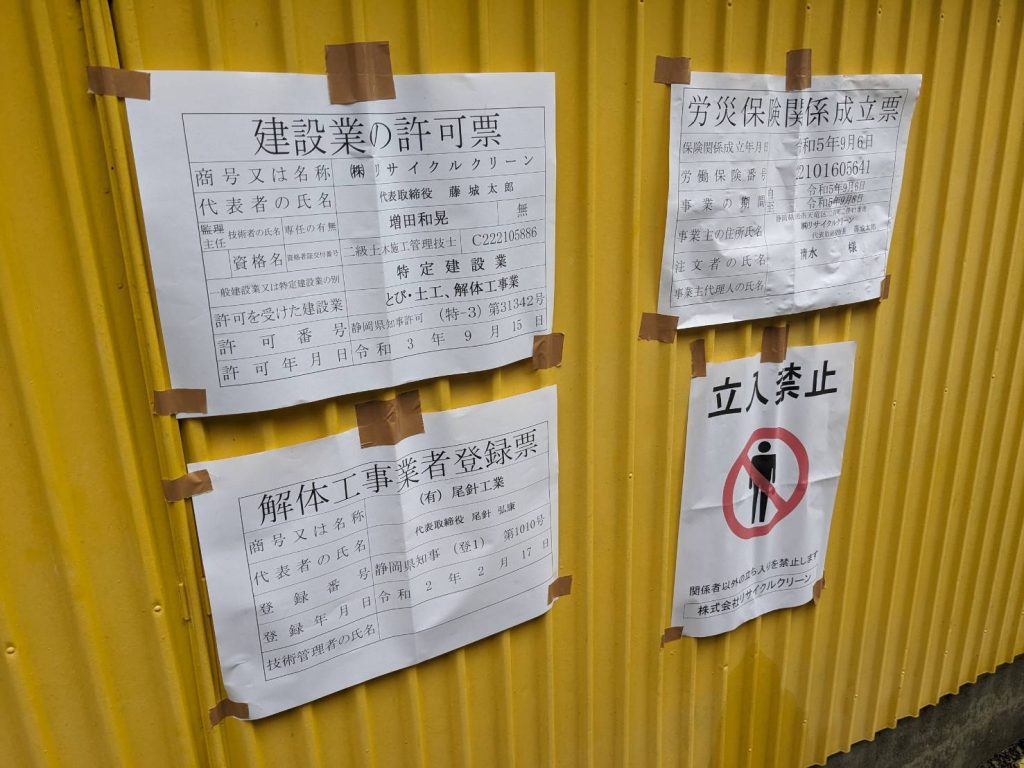 建設業の許可票
商号又は名称 ㈱リサイクルクリーン
代表者の氏名 代表取締役 藤城太郎
監理
主任 技術者の氏名 専任の有無 増田和晃 無
資格名 資格者証交付番号 二級土木施工管理技士 C222105886
一般建設業又は特定建設業の別 特定建設業
許可を受けた建設業 とび・土工、解体工事業
許可番号 静岡県知事許可 (特-3) 第31342号
許可年月日 令和 3 年 9 月 15 日
解体工事業者登録票
商号又は名称 (有) 尾針工業
代表者の氏名 代表取締役 尾針 弘康
登録番号 静岡県知事 (登1) 第1010号
登録年月日 令和 2 年 2 月 17 日
技術管理者の氏名
労災保険関係成立票
保険関係成立年月日 令和5年9月6日
労働保険番号 22101605641
事業の期間 自 令和5年9月6日
至 令和5年9月8日
事業主の住所氏名 ㈱リサイクルクリーン
代表取締役
注文者の氏名 清水 様
事業主代理人の氏名
立入禁止
関係者以外の立ち入りを禁止します
株式会社リサイクルクリーン